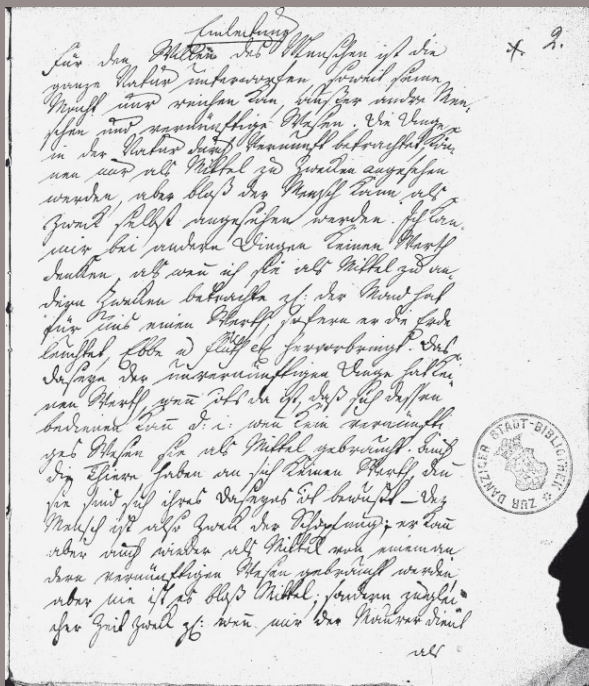 Einleitung
* 2.
Für den Willen des Menschen ist die
ganze Natur unterworfen, soweit seine
Macht nur reichen kan, außer andre Men-
schen und vernünftige Wesen. Die Dinge
in der Natur durch Vernunft betrachtet, kön-
nen nur als Mittel zu Zwecken angesehen
werden, aber bloß der Mensch kann als
Zweck selbst angesehen werden. Ich kan
mir bei andern Dingen keinen Werth
denken, als wenn ich sie als Mittel zu an-
dern Zwecken betrachte z.E. der Mond hat
für uns einen Werth, sofern er die Erde
leuchtet, Ebbe u Fluth etc hervorbringt. Das
Daseyn der unvernünftigen Dinge hat kei-
nen Werth, wenn da ist, daß sich dessen
bedienen kann d. i. wenn kein vernünfti-
ges Wesen sie als Mittel gebraucht. Auch
die Thiere haben an sich keinen Werth denn
sie sind sich ihres Daseyns bewußt – der
Mensch ist also Zweck der Schöpfung; er kann
aber auch wieder als Mittel von einem an-
dern vernünftigen Wesen gebraucht werden,
aber nie ist er bloß Mittel; sondern zuglei-
cher Zeit Zweck z.E. wenn mir der Maurer dient
als
DANZIGER STADT-BIBLIOTHEK
ZUR